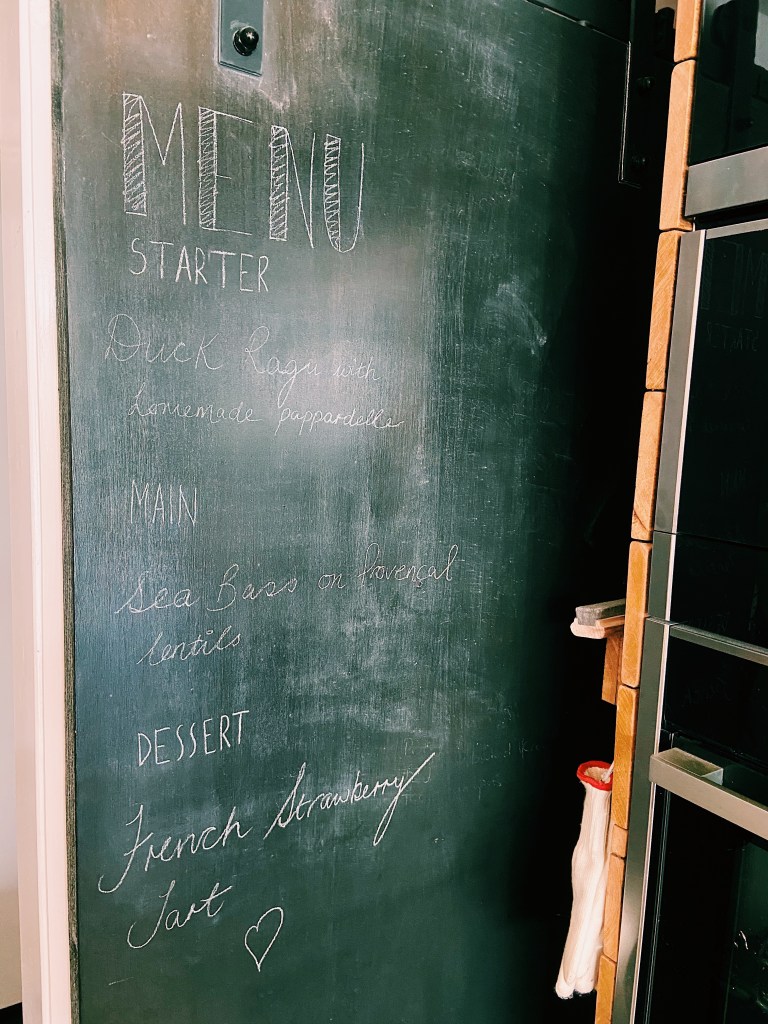 MENU
STARTER
Duck Ragu with
homemade puppardelle
MAIN
Sea Bass on Provençal
lentils
DESSERT
French Strawberry
Tart